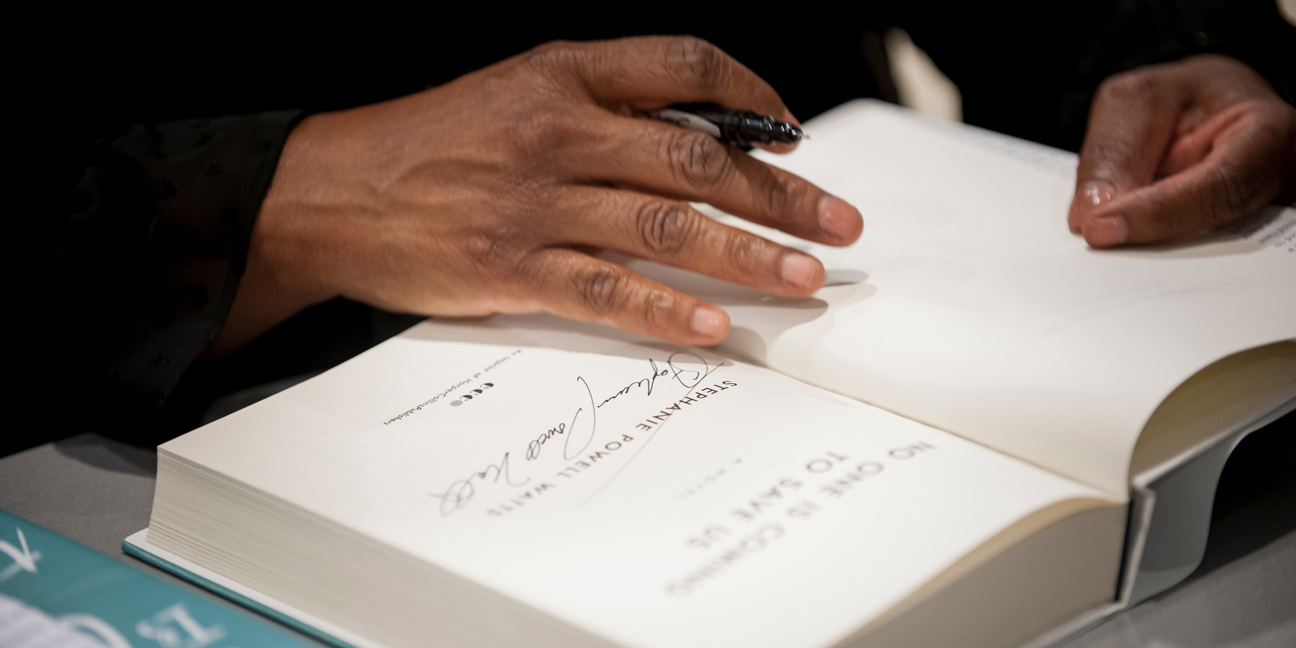 NO ONE IS COMING
TO SAVE US
A NOVEL
STEPHANIE POWELL WATTS
Stephanie Powell Watts
ecco
An Imprint of HarperCollinsPublishers